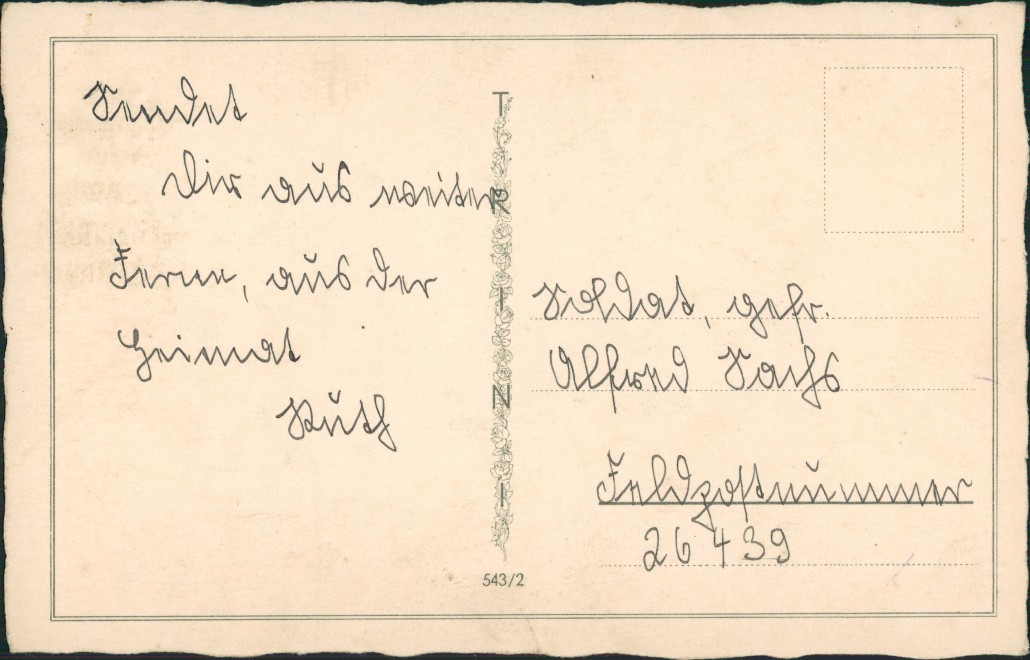 Sendet
Dir aus weiter
Ferne, aus der
Heimat
Ruth
TRINI
Soldat, gefr.
Alfred Sachs
Feldpostnummer
26439
543/2